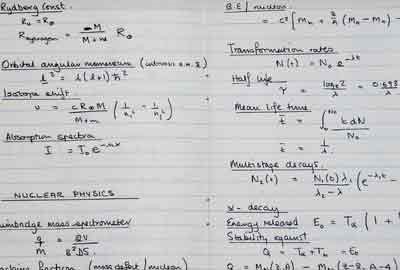 Rydberg Const.
R∞ = R∞
R hydrogen = M / M + m R∞
Orbital angular momentum
l² = l(l+1) ħ²
Isotope shift.
ν = cR∞M / M+m ( 1/n₁² - 1/n₂² )
Absorption spectra
I = I₀ e^-nσx
NUCLEAR PHYSICS
Bainbridge mass spectrometer
q/M = 2V / B²DS
fraction (mass defect / nucleon)
B.E / nucleon
= c² [ Mn + Z/A (MH - Mn) -
Transformation rates
N(t) = N₀ e^-λt
Half life
τ = loge2 / λ = 0.693 / λ
Mean life time
t̄ = ∫₀^N₀ t dN / N₀
t̄ = 1/λ
Multistage decays.
N₂(t) = N₁(0) λ₁ / λ₂ - λ₁ ( e^-λ₁t -
α - decay
Energy released E₀ = Tα ( 1 +
Stability against
Q = Tα + Tb = E₀